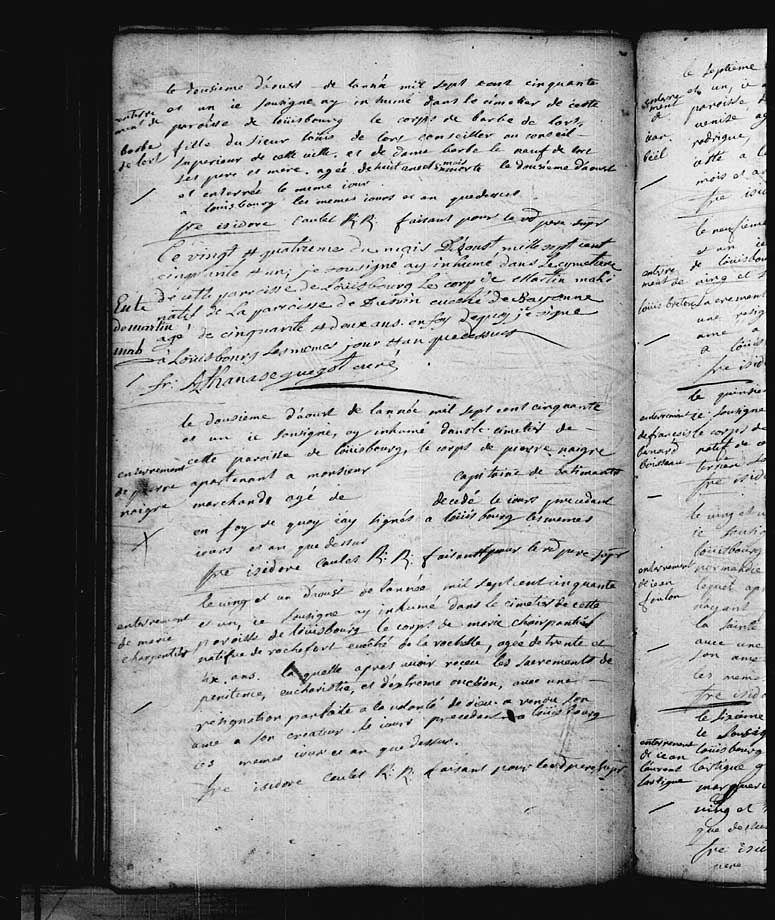 le dousieme d'aoust - de lannée mil sept cent cinquante
et un ie sousigne ay inhumé dans le cimetier de cette
paroisse de loüisbourg le corps de barbe de lort,
fille du sieur loüis de lort conseiller au conseil-
superieur de cette ville et de dame barbe le neuf de lort
ses pere et mere. agée de huit mois morte le dousieme d'aoust
et enterrée le meme iour
a loüisbourg les memes iours et an que dessus.
fre isidore caulet R: R: faisant pour le rd pere supr
enterre
ment de
barbe
de lort
Le vingt & quatrieme du mois D'aoust mille sept cent
cinquante & un, je sousigné ay inhumé dans le cymetiere
de cette paroisse de Louisbourg le corp de Martin mahé
natif de La parroisse de eveché de Bayonne
agé de cinquante & deux ans. en foy de quoy j'e signé
à Louisbourg Les memes jour & an que dessus
fr: Athanase guegot curé
Ente
de martin
mah
le dousieme d'aoust de lannée mil sept cent cinquante
et un ie sousigné, ay inhumé dans le cimetier de -
cette paroisse de loüisbourg, le corps de pierre naigre
apartenant a monsieur capitaine de batimants
marchand, agé de decedé le iours precedant
en foy de quoy iay signés a loüisbourg les memes
iours et an que dessus
fre isidore caulet R: R: faisant pour le rd pere supr
enterrement
de pierre
naigre
le ving et un d'aoust de lannée mil sept cent cinquante
et un, ie sousigne ay inhume dans le cimetier de cette
paroisse de loüisbourg le corps de marie charpantiés
natifve de rochefort evéché de la rochelle, agée de trente et
six ans. laquelle apres avoir receu les sacrements de
penitence, eucharistie, et d'extreme onction, avec une -
resignation parfaite a la volonté de dieu a rendu son
ame a son createur le iours precedant a loüisbourg
les memes iour et an que dessus.
fre isidore caulet R: R: faisant pour le rd pere supr
enterrement
de marie
charpentiés
le septieme
et un, ie
paroisse d
rodrigue,
mois et an
fre isi
le neufieme
et un ie
de loüisbou
de cinq et
sacrement
une resig
ame a
a loüis
fre isido
enterre
ment de
loüis
le quinsie
ie sousigne
le corps de
natif de
fre isid
enterrement
de francois
bernard
le ving et u
ie sousig
loüisbourg
normandie
la sainte
avec une
son ame
les meme
fre isid
enterrement
de iean
foulon
le sixieme
ie sousig
loüisbourg
lartigue
ving et
que dessu
fre isi
pere
enterrement
de iean
laurent
lartigue